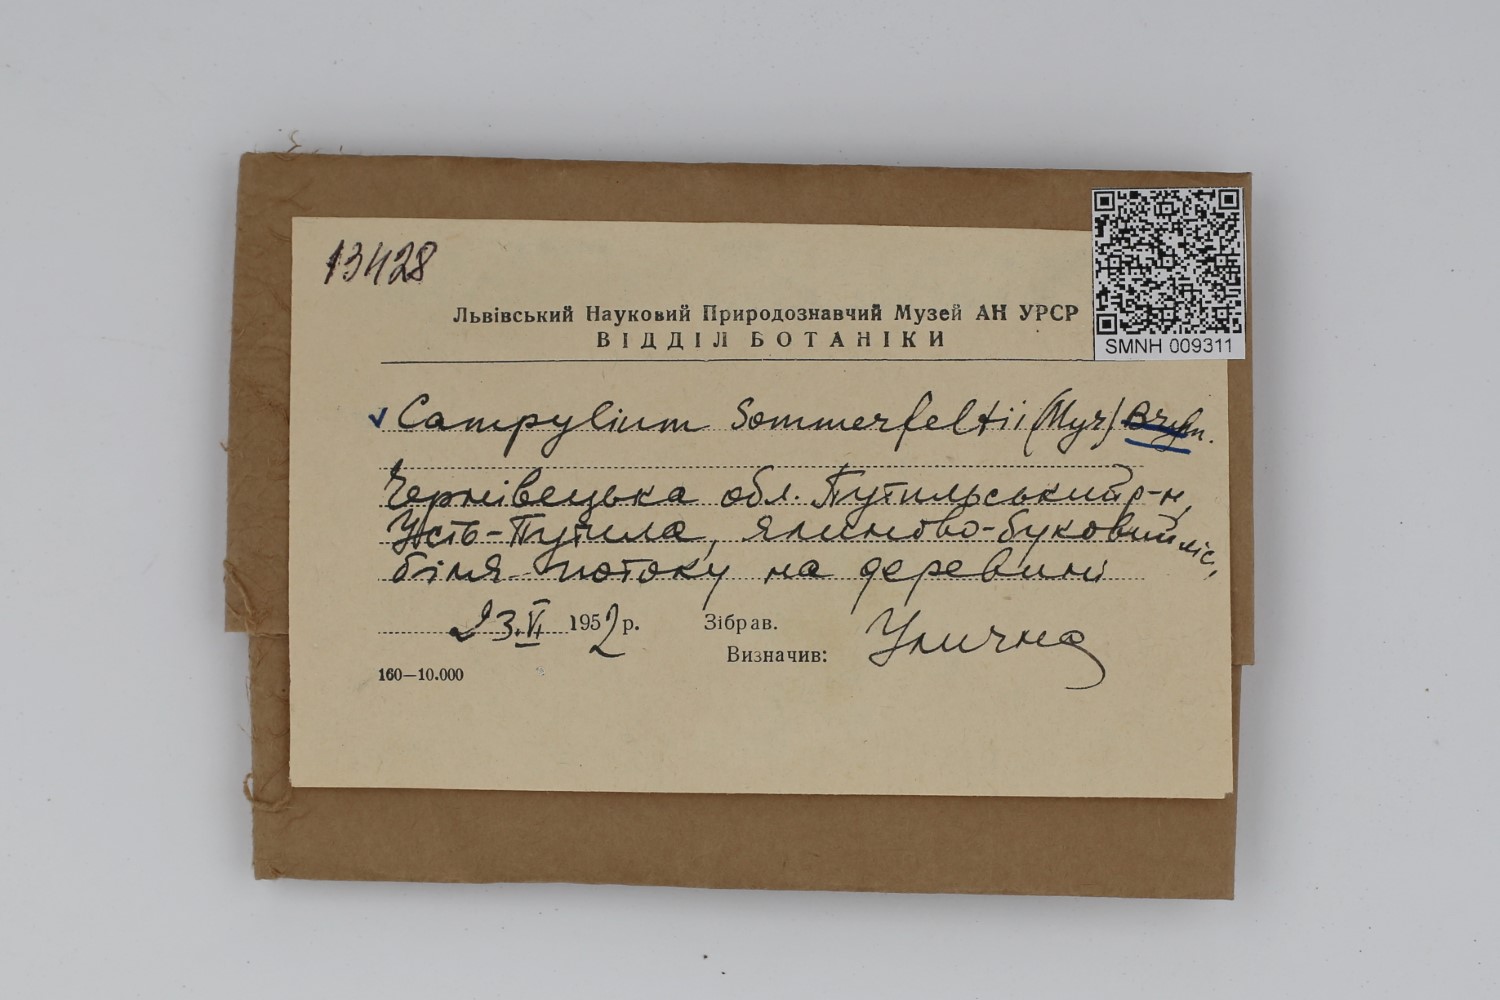 13428
Львівський Науковий Природознавчий Музей АН УРСР
ВІДДІЛ БОТАНІКИ
SMNH 009311
Campylium Sommerfeltii (Myr) Bryhn.
Чернівецька обл. Путильський р-н,
Усть-Путила, ялиново-буковий ліс,
біля потоку на деревині
23.VI 1952 р. Зібрав.
Визначив: Улична
160—10.000